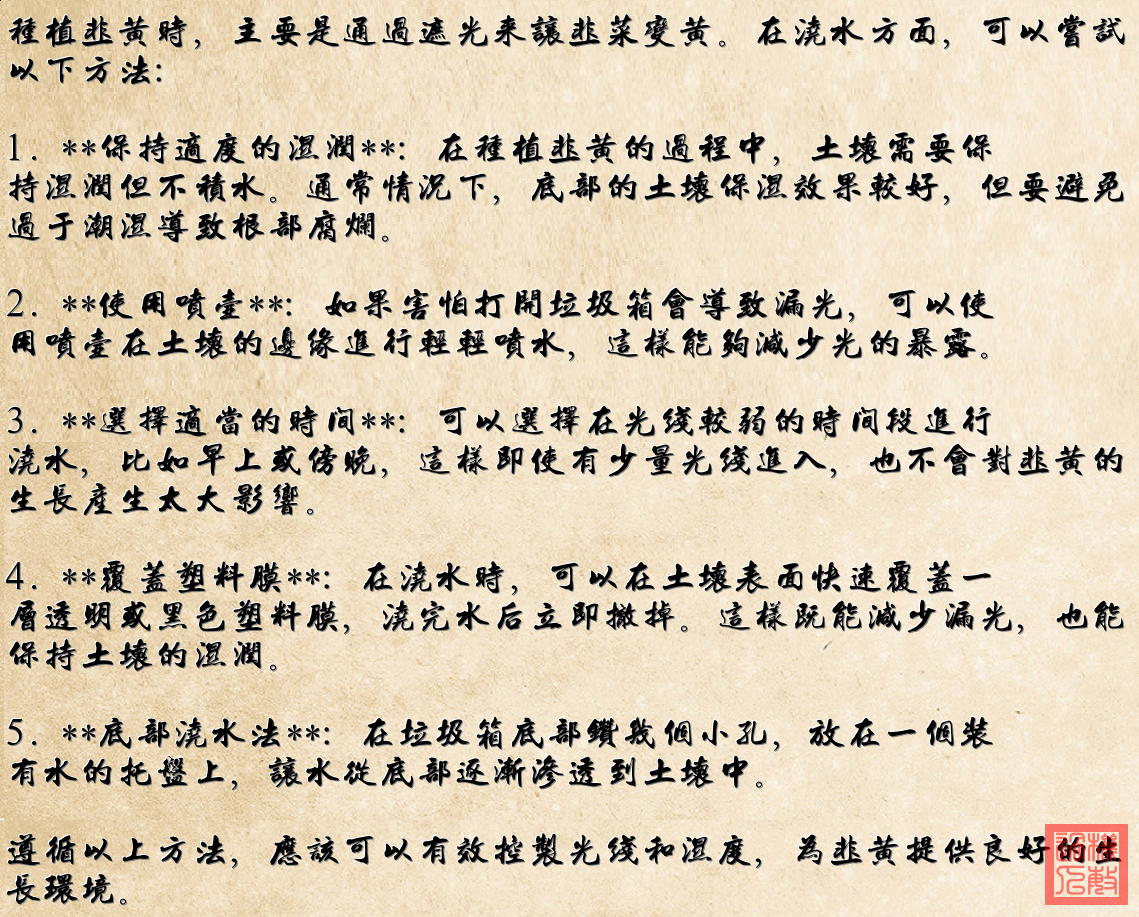 種植韭黃時，主要是通過遮光來讓韭菜變黃。在澆水方面，可以嘗試
以下方法：
1. **保持適度的濕潤**：在種植韭黃的過程中，土壤需要保
持濕潤但不積水。通常情況下，底部的土壤保濕效果較好，但要避免
過于潮濕導致根部腐爛。
2. **使用噴壺**：如果害怕打開垃圾箱會導致漏光，可以使
用噴壺在土壤的邊緣進行輕輕噴水，這樣能夠減少光的暴露。
3. **選擇適當的時间**：可以選擇在光綫較弱的時间段進行
澆水，比如早上或傍晚，這樣即使有少量光綫進入，也不會對韭黃的
生長產生太大影響。
4. **覆蓋塑料膜**：在澆水時，可以在土壤表面快速覆蓋一
層透明或黑色塑料膜，澆完水后立即撤掉。這樣既能減少漏光，也能
保持土壤的濕潤。
5. **底部澆水法**：在垃圾箱底部鑽幾個小孔，放在一個裝
有水的托盤上，讓水從底部逐漸滲透到土壤中。
遵循以上方法，應該可以有效控製光綫和濕度，為韭黃提供良好的生
長環境。